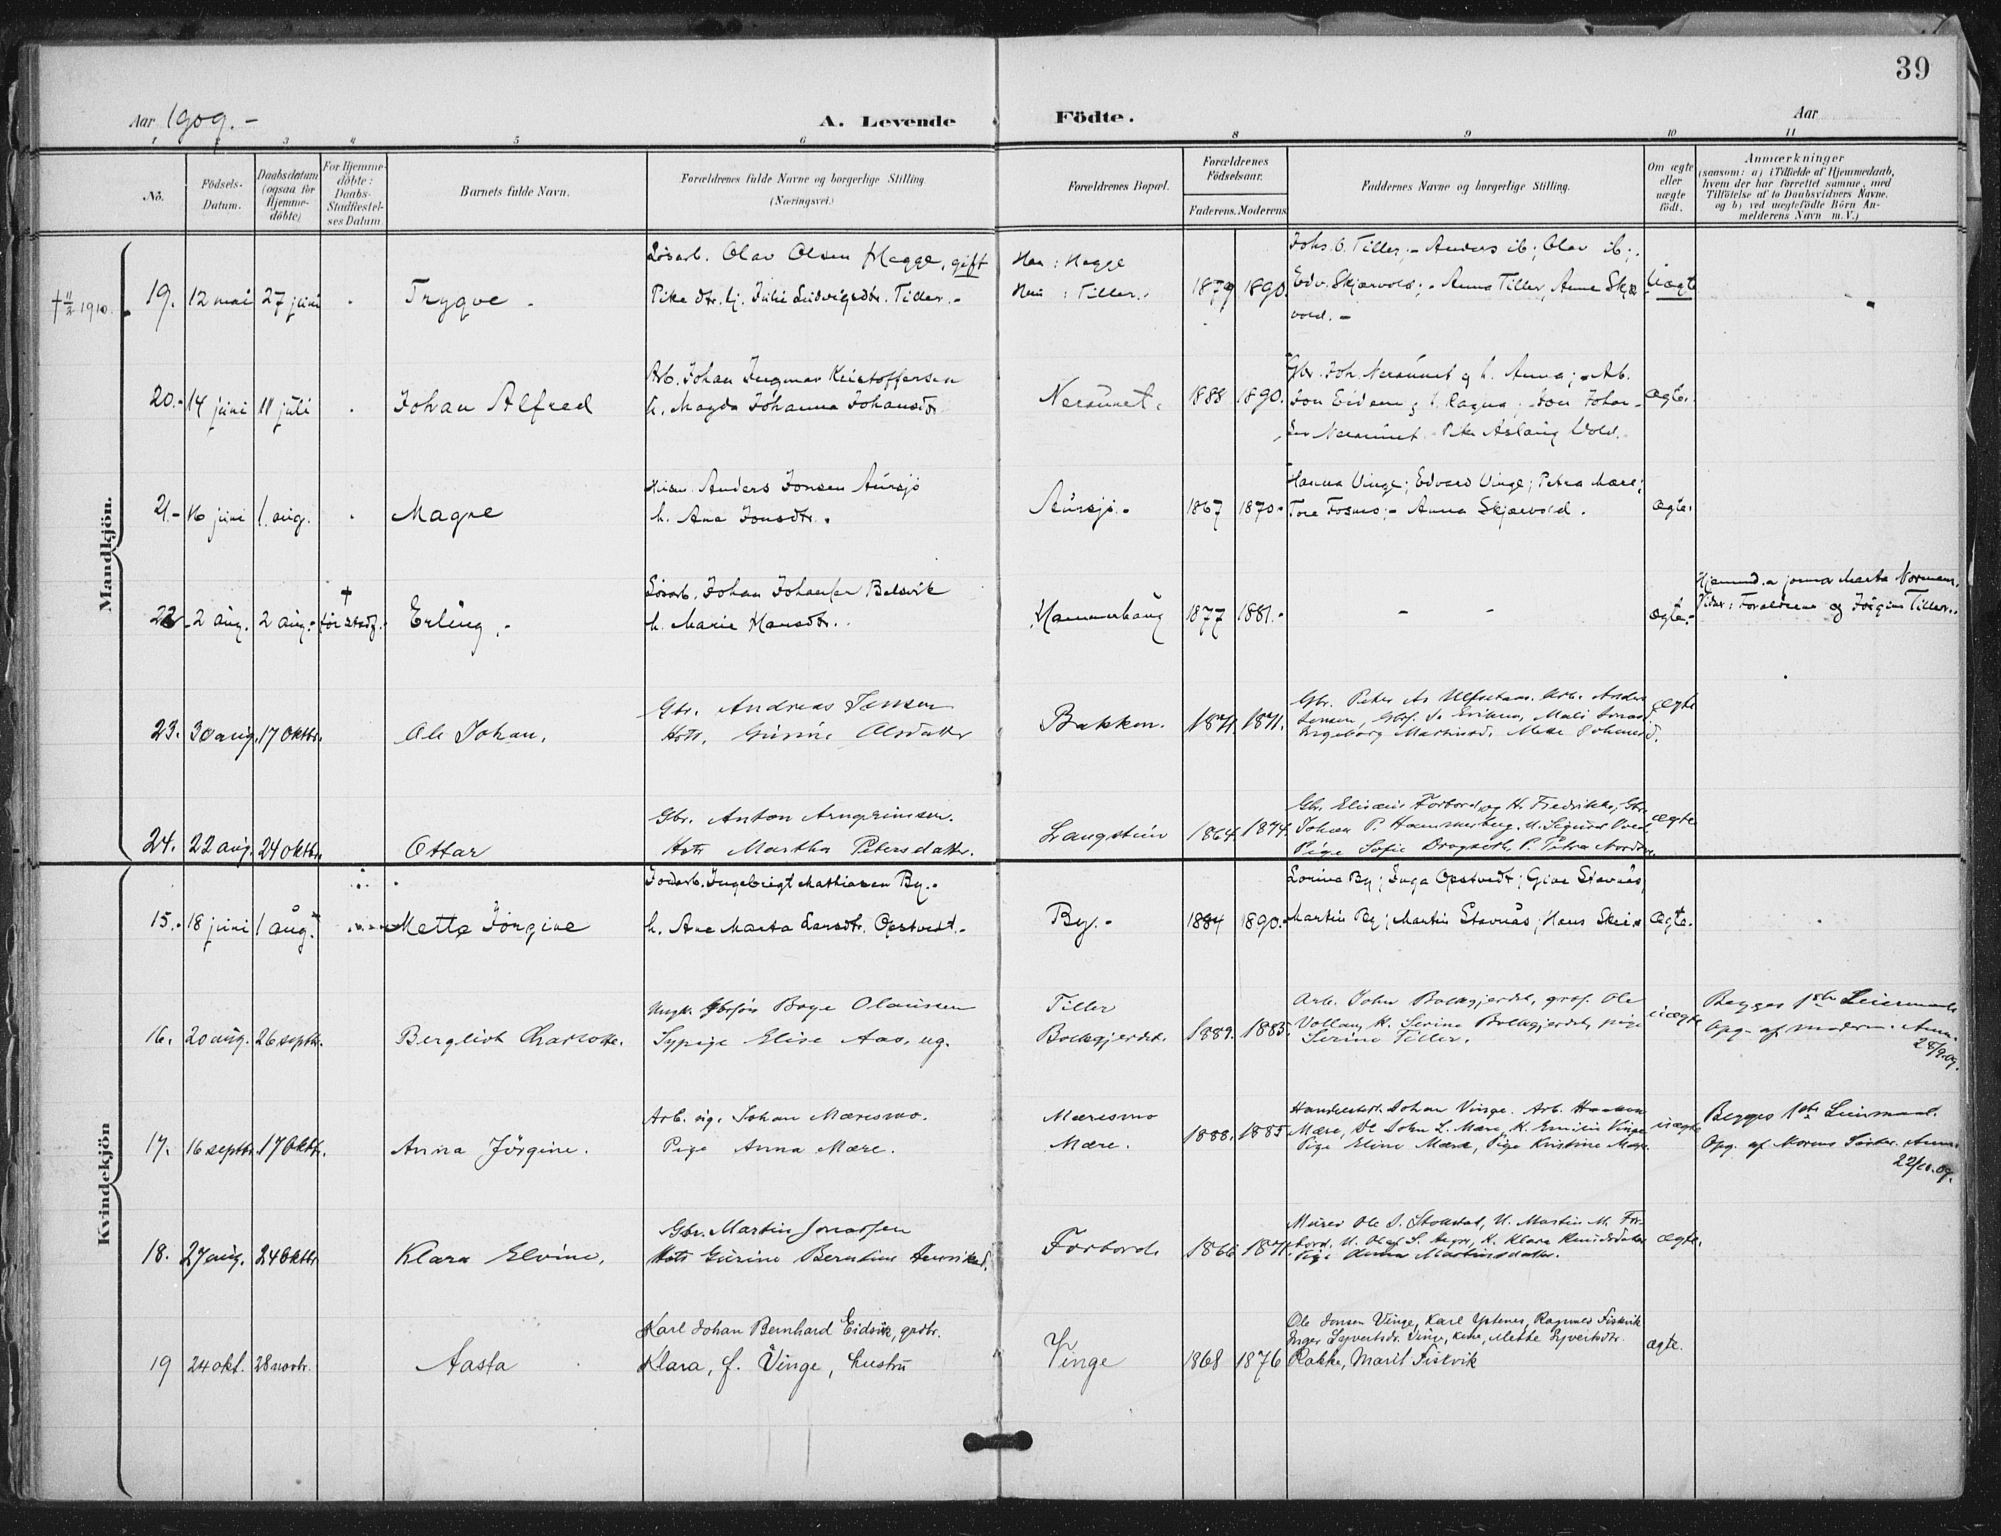 39
Aar 1909.-
A. Levende Födte.
Aar
1 2 3 4 5 6 8 9 10 11
No.
Födsels-Datum.
Daabsdatum (ogsaa for Hjemme-döbte)
For Hjemme-döbte: Daabs-Stadfæstel-ses Datum
Barnets fulde Navn.
Forældrenes fulde Navne og borgerlige Stilling (Næringsvei.)
Forældrenes Bopæl.
Forældrenes Födselsaar.
Faderens. Moderens.
Faddernes Navne og borgerlige Stilling.
Om ægte eller uægte födt.
Anmærkninger
(saasom: a) i Tilfælde af Hjemmedaab, hvem der har forrettet samme, med Tilföielse af to Daabsvidners Navne, og b) ved uægtefödte Börn Anmelderens Navn m. V.)
Mandkjön.
† 11/2 1910.
19. 12 mai 27 juni Trygve
Lösarb. Olav Olsen Hegge, gift
Pike dtr. Lj. Julie Ludvigsdtr. Tiller.-
Han: Hegge
Hun: Tiller.
1879 1890.
Johs. O. Tiller;- Anders ib; Olav ib;
Edv. Skjærvold;- Anna Tiller, Anne Skjær
vold.-
Uægte
20.- 14 juni 11 juli Johan Alfred
Arb. Johan Ingmar Kristoffersen
h. Magda Johanna Johansdtr
1888 1890.
Gbr. Joh. h. Anna; Arb.
Jon Eidem h. Ragna; Jon Johan-
Pike Aslaug Vold.
ægte.
21.- 16 juni 1. aug. Magne
Anders Jonsen Aursjö
h. Ana Jonsdtr.
Aursjö.-
1867 1870.-
Hanna Vinge; Edvard Vinge; Petra Mære;
Tore Fosnes;- Anna Skjærvold.
ægte.
22.- 2 aug. 2 aug.- † för stadf. Erling.-
Lösarb. Johan Johansen Belsvik
h. Marie Hansdtr.
Hammerhaug
1877 1881.-
- -
ægte.-
Hjemmed. a jomor Marta Normann.
Vidner: Forældrene og Jörgine Tiller.
23. 30 aug. 17 Oktbr. Ole Johan.
Gbr. Andreas Jensen
Hstr. Gurine Olsdatter
Bakken.
1871. 1871.
Gbr. Peter As Ulfsetaas. Arb. Anders
Ingeborg Martinsd. Mette
ægte
24. 22 aug. 24 oktbr. Ottar
Gbr. Anton Arngrimsen.
Hstr Martha Petersdatter.
Langstein
1864. 1874.
Gbr. Elisæus Forbord og H. Fredrikke, Gbr.
Johan P. Hammerberg. U. Sigurd
Pige Sofie Dragseth. P. Petra
ægte
Kvindekjön
15.- 18 juni 1 aug.- Mette Jörgine
Jordarb. Ingebrigt Mathiasen By.-
h. Ane Marta Larsdtr. Opstvedt.-
By.-
1884 1890.-
Lorine By; Inga Opstvedt; Gine Stavnås;
Martin By; Martin Stavnås; Hans Skeis
Ægte.
16. 20 aug. 26 septbr. Bergliot Charlotte.
Ungk. Gbrsön Boye Olausen
Sypige Elise Aas, ug.
Tiller
Bolkagjerdet.
1889. 1885.
Arb. John Bolkagjerdet, grdf. Ole
Vollan, H. Serine Bolkagjerdet, pige
Serine Tiller.
uægte
Begges 1ste Leiermaal
Opg. af moderen. Anm.
28/9.09.
17. 16 septbr. 17 Oktbr. Anna Jörgine.
Arb. ug. Johan Mæresmo.
Pige Anna Mære.
Mæresmo
Mære.
1888. 1885
Handelsbest. Johan Vinge. Arb. Haakon
Mære, do John L. Mære, H. Emilie Vinge
Pige Eline Mære, Pige Kristine Mære.
uægte
Begges 1ste Leiermaal.
Opg. af Morens Söster. Anm.
22/10.09.
18. 27 aug. 24 Oktbr Klara Elvine.
Gbr. Martin Jonassen
Hstr Gurine Berntine Henriksd.
Forbord.
1866 1871.
Murer Ole S. Stokstad, U. Martin M. For-
bord, U. Olaf S. K. Klara Knudsdatter
Pige Anna Martinsdatter.
ægte.
19 24 okt. 28 novbr. Aasta
Karl Johan Bernhard Eidsvik, grdbr.
Klara, f. Vinge, hustru
Vinge
1868 1876
Ole Jonsen Vinge, Karl Ystenes, Ragnvald Fiskvik
Inger Syvertsdr. Vinge, Mette Syvertsdtr.
Rakke, Marit Fiskvik
ægte.